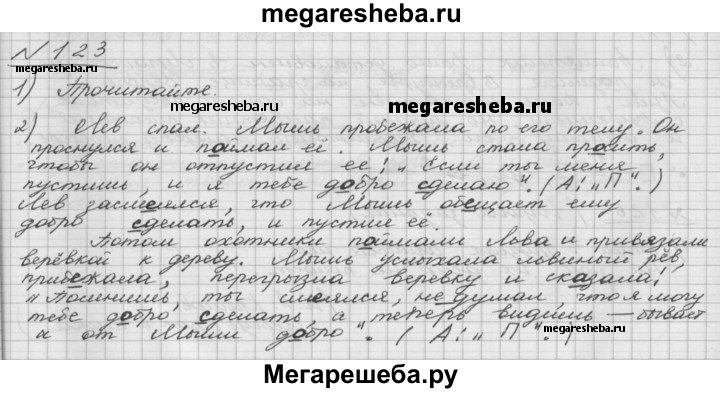 megaresheba.ru
№ 123
megaresheba.ru
1) Прочитайте.
megaresheba.ru
megaresheba.ru
2) Лев спал. Мышь пробежала по его телу. Он
проснулся и поймал её. Мышь стала просить,
чтобы он отпустил ее: „Если ты меня
пустишь, и я тебе добро сделаю". (А: „П".)
Лев засмеялся, что Мышь обещает ему
добро сделать, и пустил её.
Потом охотники поймали Льва и привязали
верёвкой к дереву. Мышь услыхала львиный рёв,
прибежала, перегрызла веревку и сказала:
„Помнишь, ты смеялся, не думал, что я могу
тебе добро сделать, а теперь видишь — бывает
и от Мыши добро". (А: „П".)
megaresheba.ru
megaresheba.ru
Мегарешеба.ру